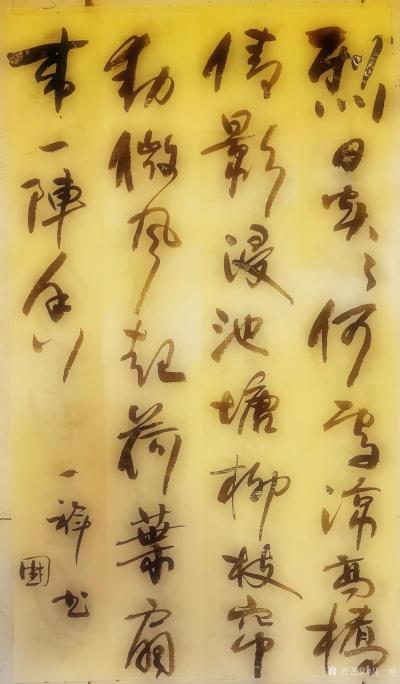 烈日炎々何處涼高樓
倩影浸池塘柳枝帘
動微风起荷葉扇
来一陣香
一祥书